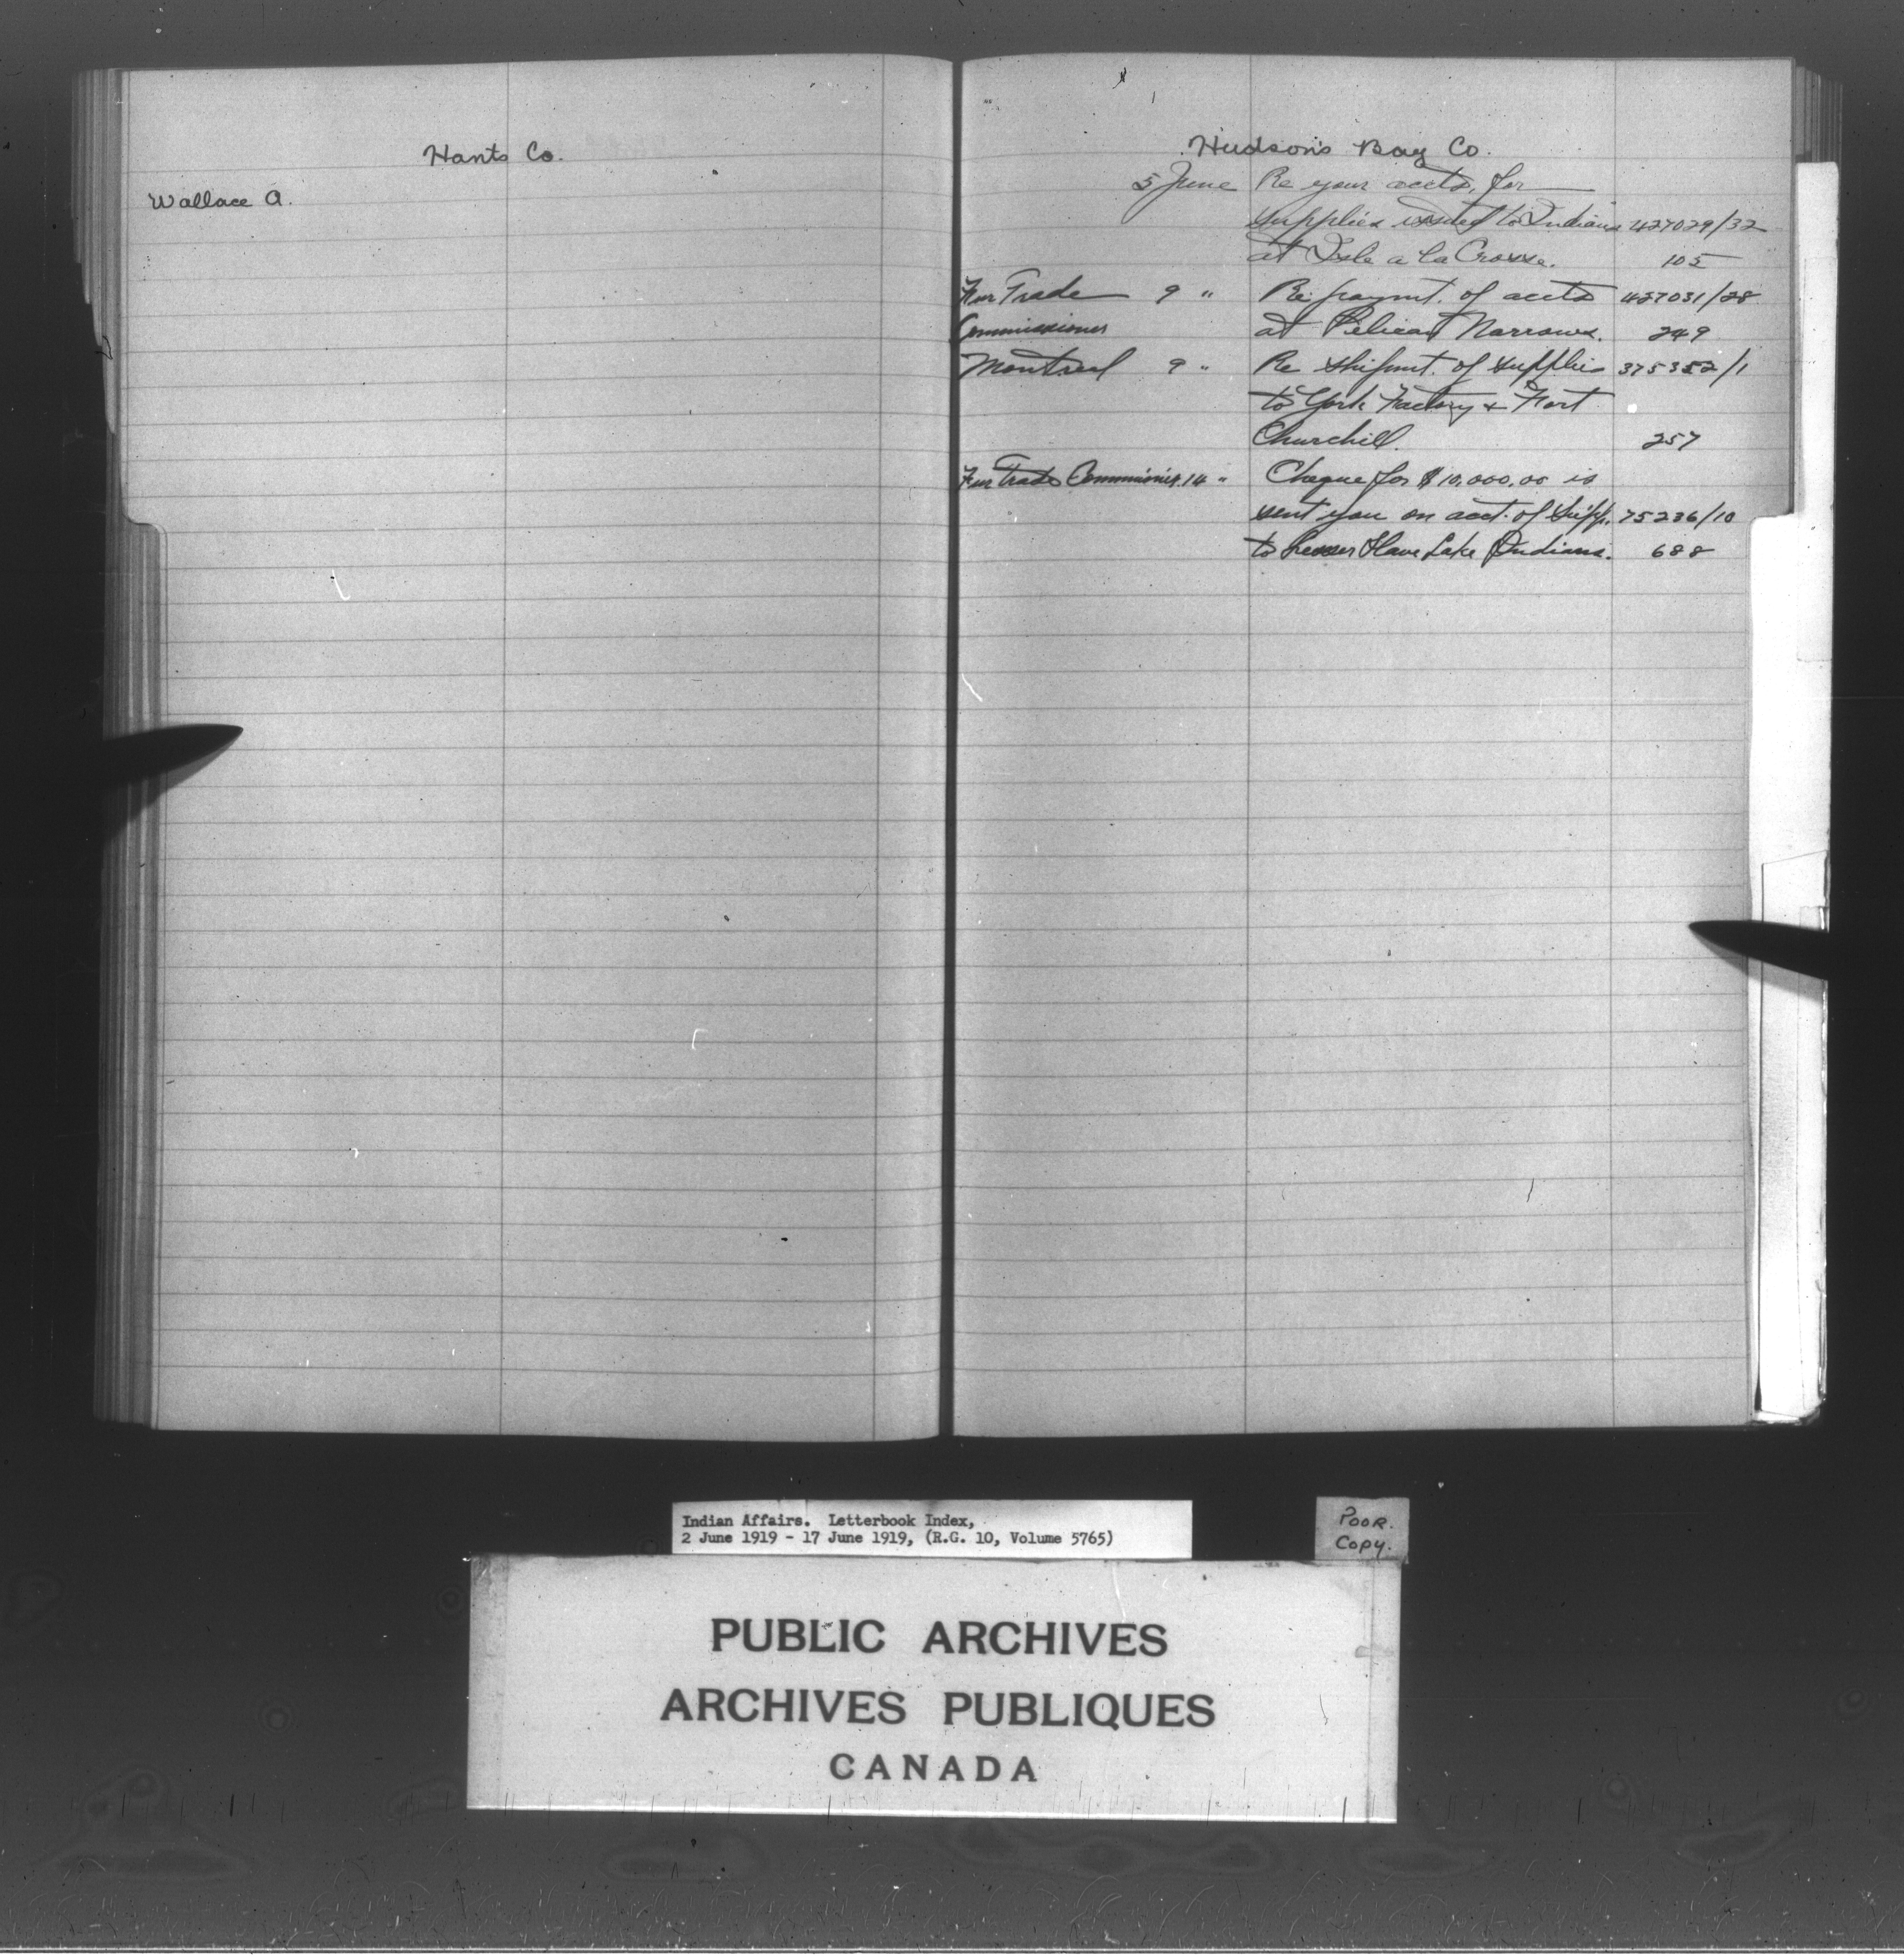 Hants Co.
Wallace A.
Hudson's Bay Co.
5 June Re your accts. for
supplies issued to Indians 427029/32
at Isle a la Crosse. 105
Fur Trade 9 " Re paymt. of accts 427031/28
Commissioner at Pelican Narrows. 249
Montreal 9 " Re shipmt. of supplies 375352/1
to York Factory + Fort
Churchill. 257
Fur Trade Commissioner. 14 " Cheque for $10,000.00 is
sent you on acct. of Supp. 75236/10
to Lesser Slave Lake Indians. 688
Indian Affairs. Letterbook Index,
2 June 1919 - 17 June 1919, (R.G. 10, Volume 5765)
POOR.
COPY.
PUBLIC ARCHIVES
ARCHIVES PUBLIQUES
CANADA